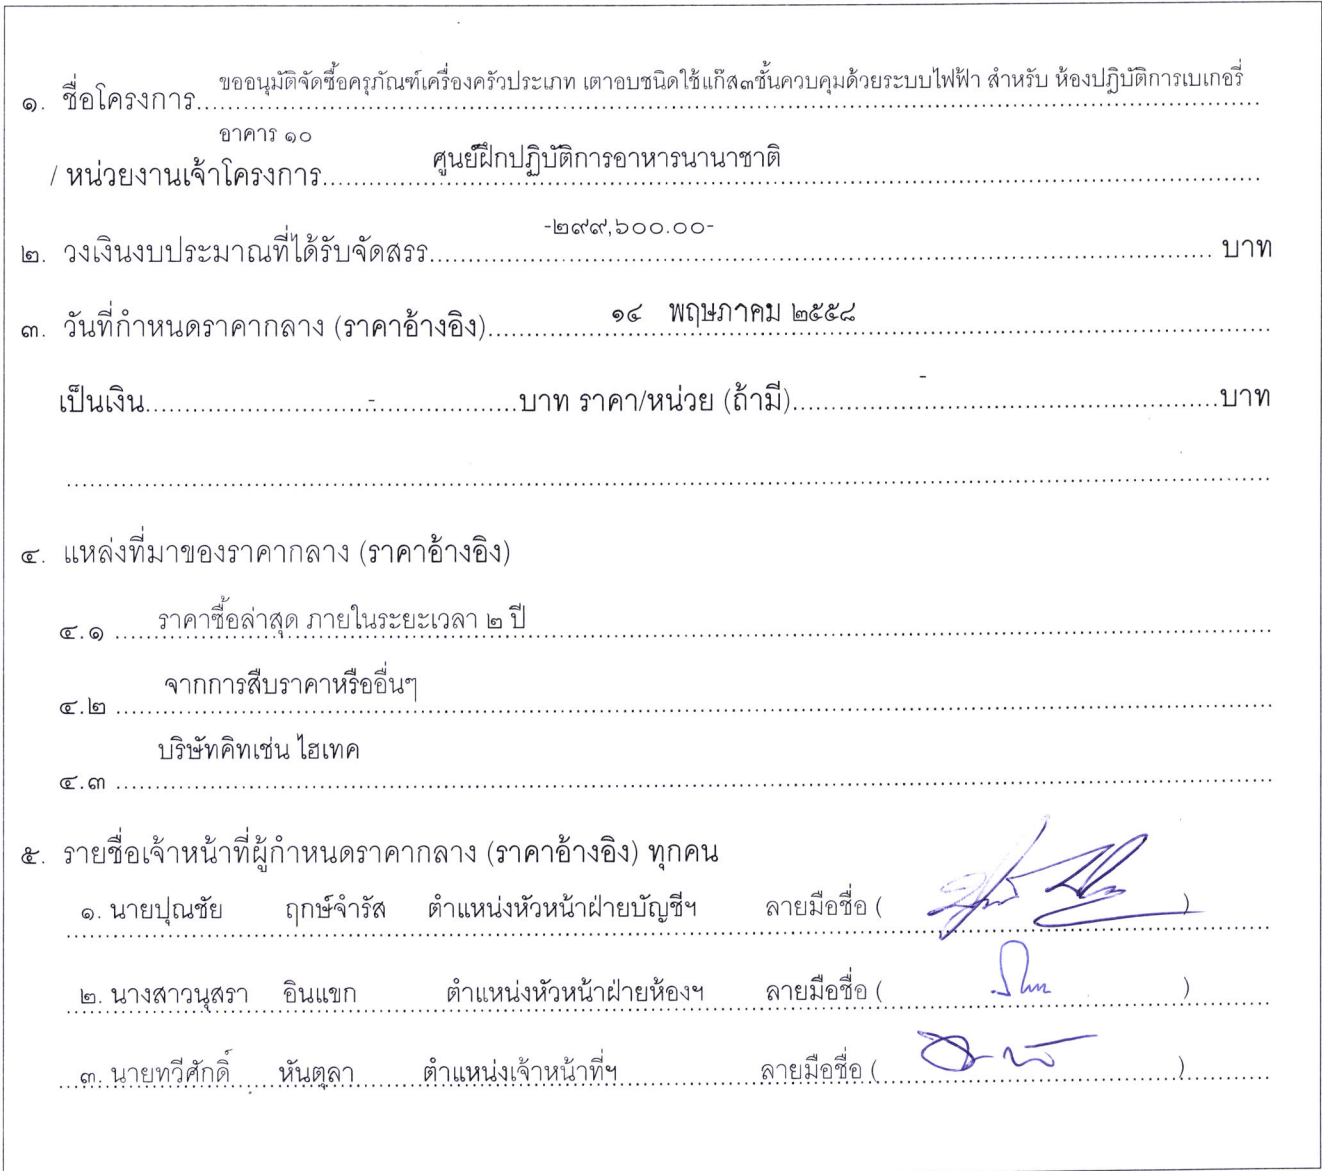 ๑. ชื่อโครงการ..ขออนุมัติจัดซื้อครุภัณฑ์เครื่องครัวประเภท เตาอบชนิดใช้แก๊ส๓ชั้นควบคุมด้วยระบบไฟฟ้า สำหรับ ห้องปฏิบัติการเบเกอรี่
อาคาร ๑๐
/ หน่วยงานเจ้าโครงการ.....ศูนย์ฝึกปฏิบัติการอาหารนานาชาติ
๒. วงเงินงบประมาณที่ได้รับจัดสรร.....-๒๙๙,๖๐๐.๐๐-..... บาท
๓. วันที่กำหนดราคากลาง (ราคาอ้างอิง).....๑๔ พฤษภาคม ๒๕๕๘
เป็นเงิน.....-.....บาท ราคา/หน่วย (ถ้ามี).....-.....บาท
๔. แหล่งที่มาของราคากลาง (ราคาอ้างอิง)
๔.๑ ราคาซื้อล่าสุด ภายในระยะเวลา ๒ ปี
๔.๒ จากการสืบราคาหรืออื่นๆ
๔.๓ บริษัทคิทเช่น ไฮเทค
๕. รายชื่อเจ้าหน้าที่ผู้กำหนดราคากลาง (ราคาอ้างอิง) ทุกคน
๑. นายปุณชัย ฤกษ์จำรัส ตำแหน่งหัวหน้าฝ่ายบัญชีฯ ลายมือชื่อ ( )
๒. นางสาวนุสรา อินแขก ตำแหน่งหัวหน้าฝ่ายห้องฯ ลายมือชื่อ ( )
๓. นายทวีศักดิ์ หันตุลา ตำแหน่งเจ้าหน้าที่ฯ ลายมือชื่อ ( )